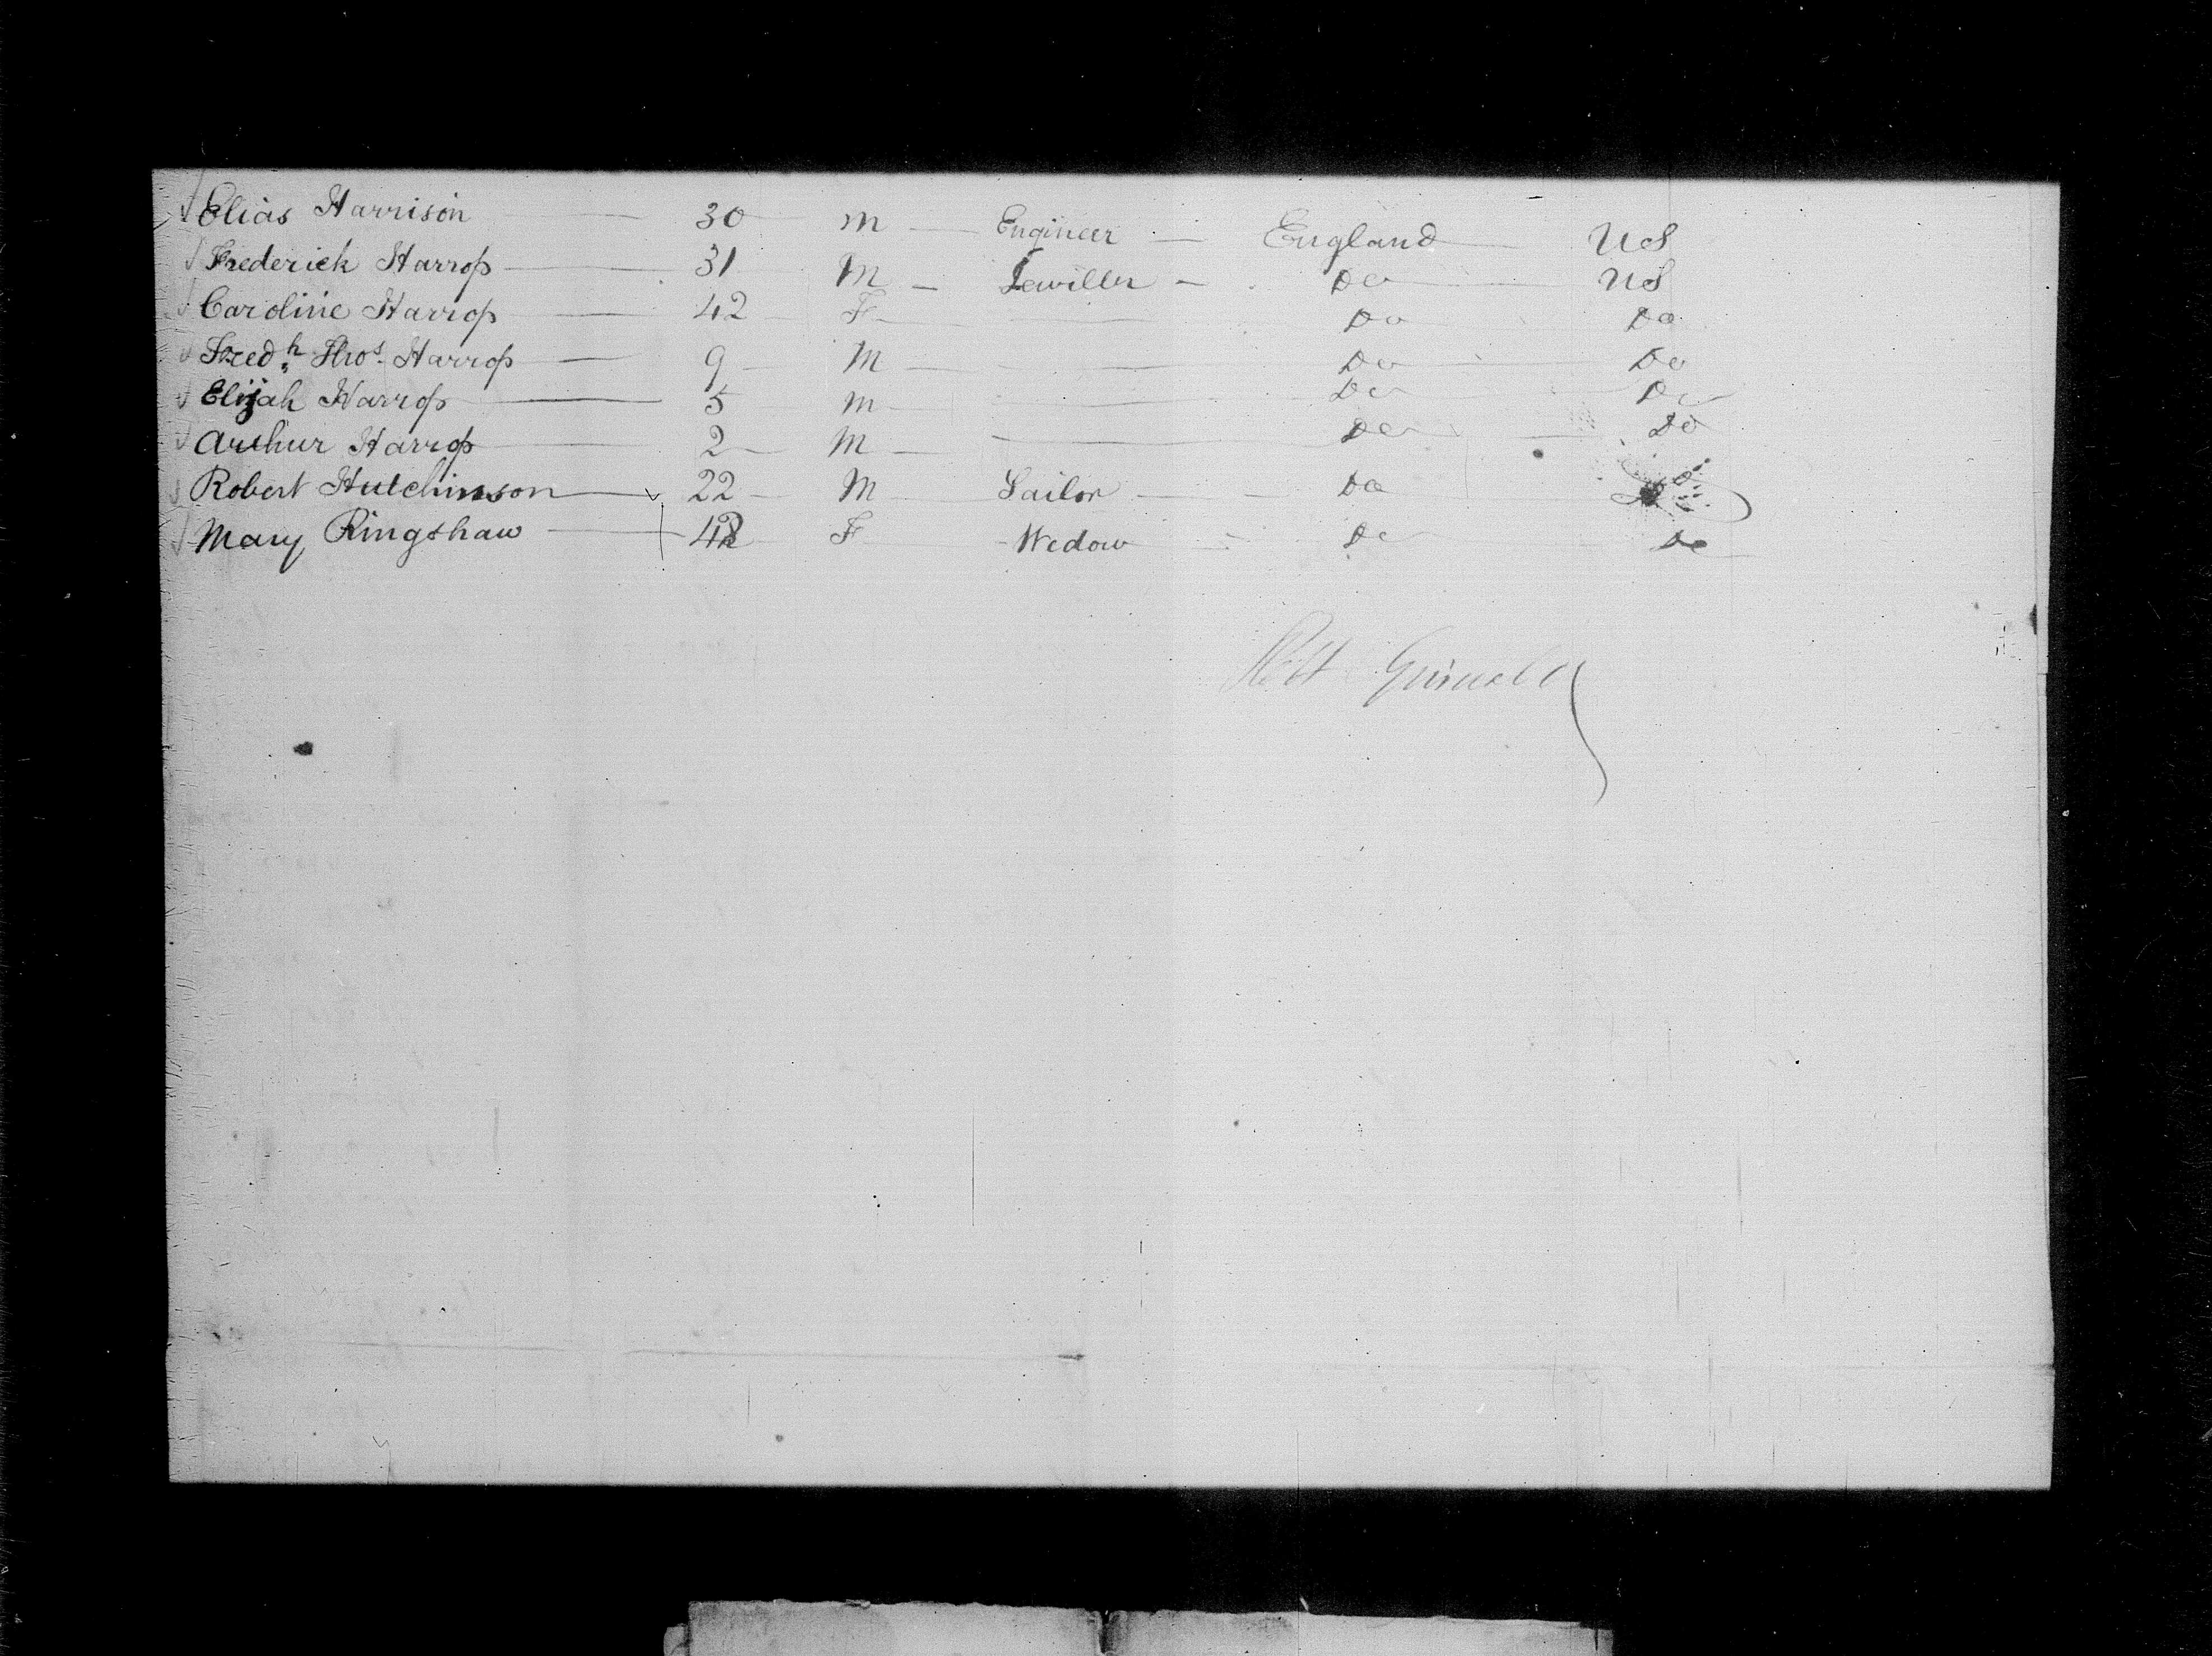 Elias Harrison 30 M Engineer England US
Frederick Harrop 31 M Do US
Caroline Harrop 42 F Do Do
Fredk Thos Harrop 9 M Do Do
Elijah Harrop 5 M Do Do
Arthur Harrop 2 M Do Do
Robert Hutchinson 22 M Sailor Do
Mary Ringshaw F Wedow Do Do